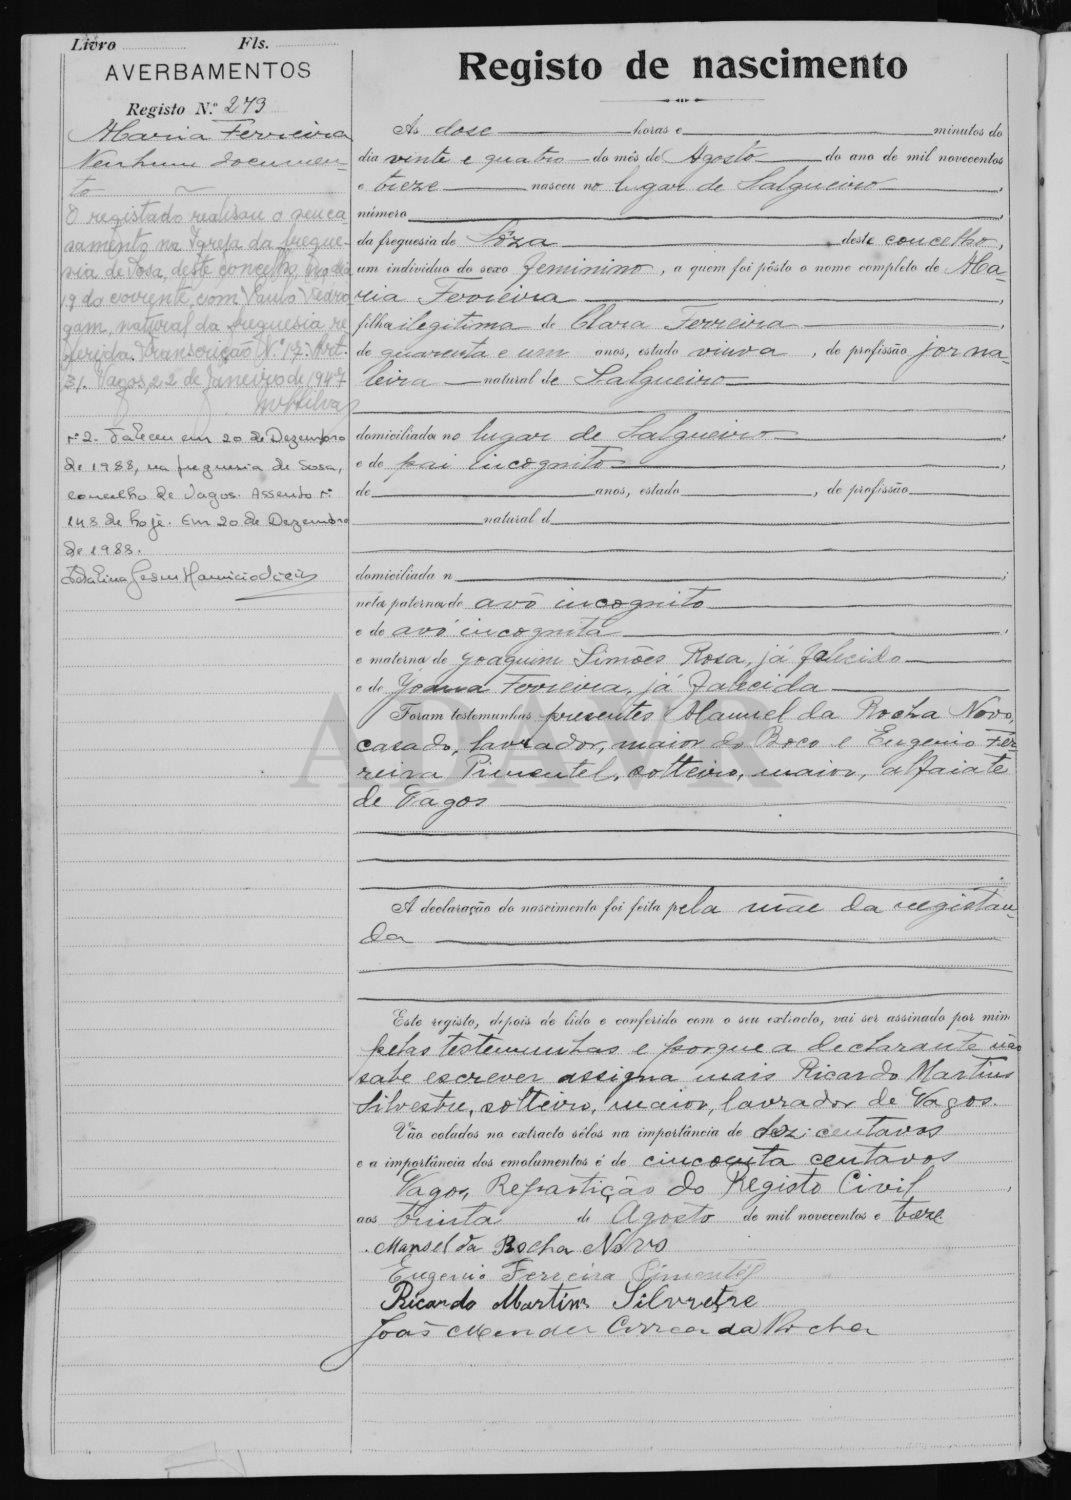 Livro Fls.
AVERBAMENTOS
Registo N.º 273
Maria Ferreira
Nenhum documen-
to
O registado realisou o seu ca-
samento na Igreja da fregue-
sia de Sosa, deste concelho, no dia
19 do corrente, com Paulo Pedro
gam, natural da freguesia re
ferida. Transcrição N.º 17. Art.
31. Vagos, 22 de Janeiro de 1947
MSilva
nº 2. Faleceu em 20 de Dezembro
de 1988, na freguesia de Sosa,
concelho de Vagos. Assento nº
148 de hoje. Em 20 de Dezembro
de 1988.
Registo de nascimento
Ás dose horas e minutos do
dia vinte e quatro do mês de Agosto do ano de mil novecentos
e treze nasceu no lugar de Salgueiro,
número,
da freguesia de Sôza deste concelho,
um individuo do sexo feminino, a quem foi pôsto o nome completo de Ma-
ria Ferreira,
filha ilegitima de Clara Ferreira,
de quarenta e um anos, estado viuva, de profissão jorna-
leira natural de Salgueiro
domiciliada no lugar de Salgueiro,
e de pai incognito,
de anos, estado, de profissão
natural d
domiciliada n;
néta paterna de avô incognito
e de avó incognita,
e materna de Joaquim Simões Rosa, já falecido
e de Joana Ferreira, já falecida
Foram testemunhas presentes Manuel da Rocha Novo,
casado, lavrador, maior do Boco e Eugenio Fer-
reira Pimentel, solteiro, maior, alfaiate
de Vagos
A declaração do nascimento foi feita pela mãe da registan-
da
Este registo, depois de lido e conferido com o seu extracto, vai ser assinado por mim
pelas testemunhas e porque a declarante não
sabe escrever assigna mais Ricardo Martins
Silvestre, solteiro, maior, lavrador de Vagos.
Vão colados no extracto sêlos na importância de dez centavos
e a importância dos emolumentos é de cincoenta centavos
Vagos, Repartição do Registo Civil,
aos trinta de Agosto de mil novecentos e treze
Manoel da Rocha Novo
Eugenio Ferreira Pimentel
Ricardo Martins Silvestre
João Mendes Correa da Rocha
ADAVR